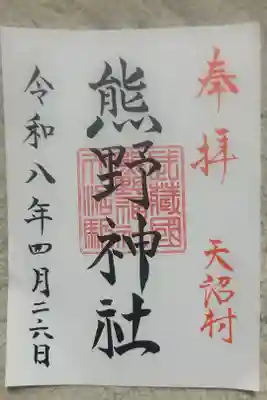 奉拝
天沼村
熊野神社
令和八年四月二六日